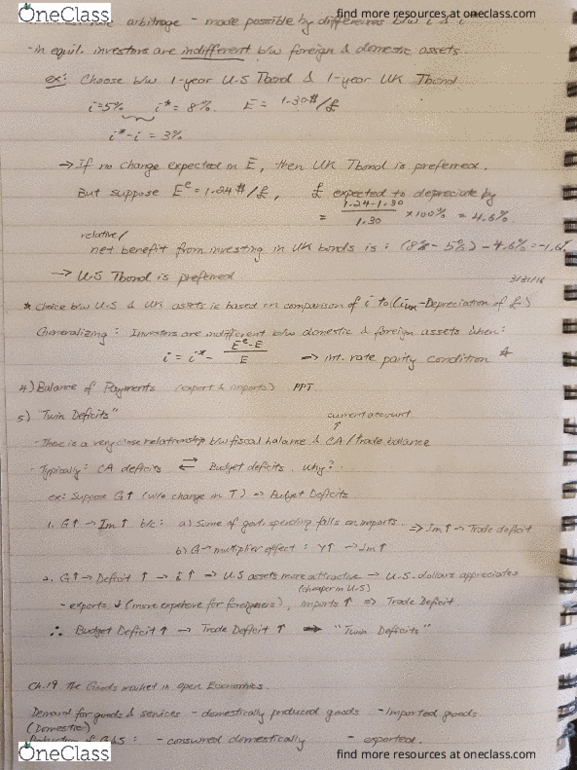 OneClass
find more resources at oneclass.com
arbitrage - made possible by differences b/w i & i*
-in equil. investors are indifferent b/w foreign & domestic assets.
ex: Choose b/w 1-year U.S Tbond & 1-year UK Tbond
i=5% i* = 8%. E = 1.30$/£
i*-i = 3%
→ If no change expected in E, then UK Tbond is preferred.
But suppose Eᵉ = 1.24$/£, £ expected to depreciate by
= 1.24-1.30 / 1.30 ×100% = 4.6%
relative/
net benefit from investing in UK bonds is : (8%-5%) - 4.6% = -1.6%
→ U.S Tbond is preferred
3/31/16
* Choice b/w U.S & UK assets is based on comparison of i to (iUK - Depreciation of £)
Generalizing : Investors are indifferent b/w domestic & foreign assets when:
i = i* - Eᵉ-E / E ⇒ int. rate parity condition *
4) Balance of Payments (export & imports) PPT
5) "Twin Deficits"
current account
↑
-There is a very close relationship b/w fiscal balance & CA/trade balance
-Typically: CA deficits ⇄ Budget deficits. why?
ex: Suppose G↑ (w/o change in T) ⇒ Budget Deficits
1. G↑ → Im↑ b/c: a) Some of govt. spending falls on imports. ⇒ Im↑ → Trade deficit
b) G → multiplier effect : Y↑ → Im↑
2. G↑ → Deficit ↑ → i↑ ⇒ U.S assets more attractive → U.S. dollars appreciates
(cheaper in U.S)
- exports ↓ (more expensive for foreigners), imports ↑ ⇒ Trade Deficit
∴ Budget Deficit ↑ → Trade Deficit ↑ ⇒ "Twin Deficits"
Ch.19 The Goods market in open Economies.
Demand for goods & services - domestically produced goods - imported goods.
(Domestic)
of G&S : - consumed domestically - exported.
OneClass
find more resources at oneclass.com